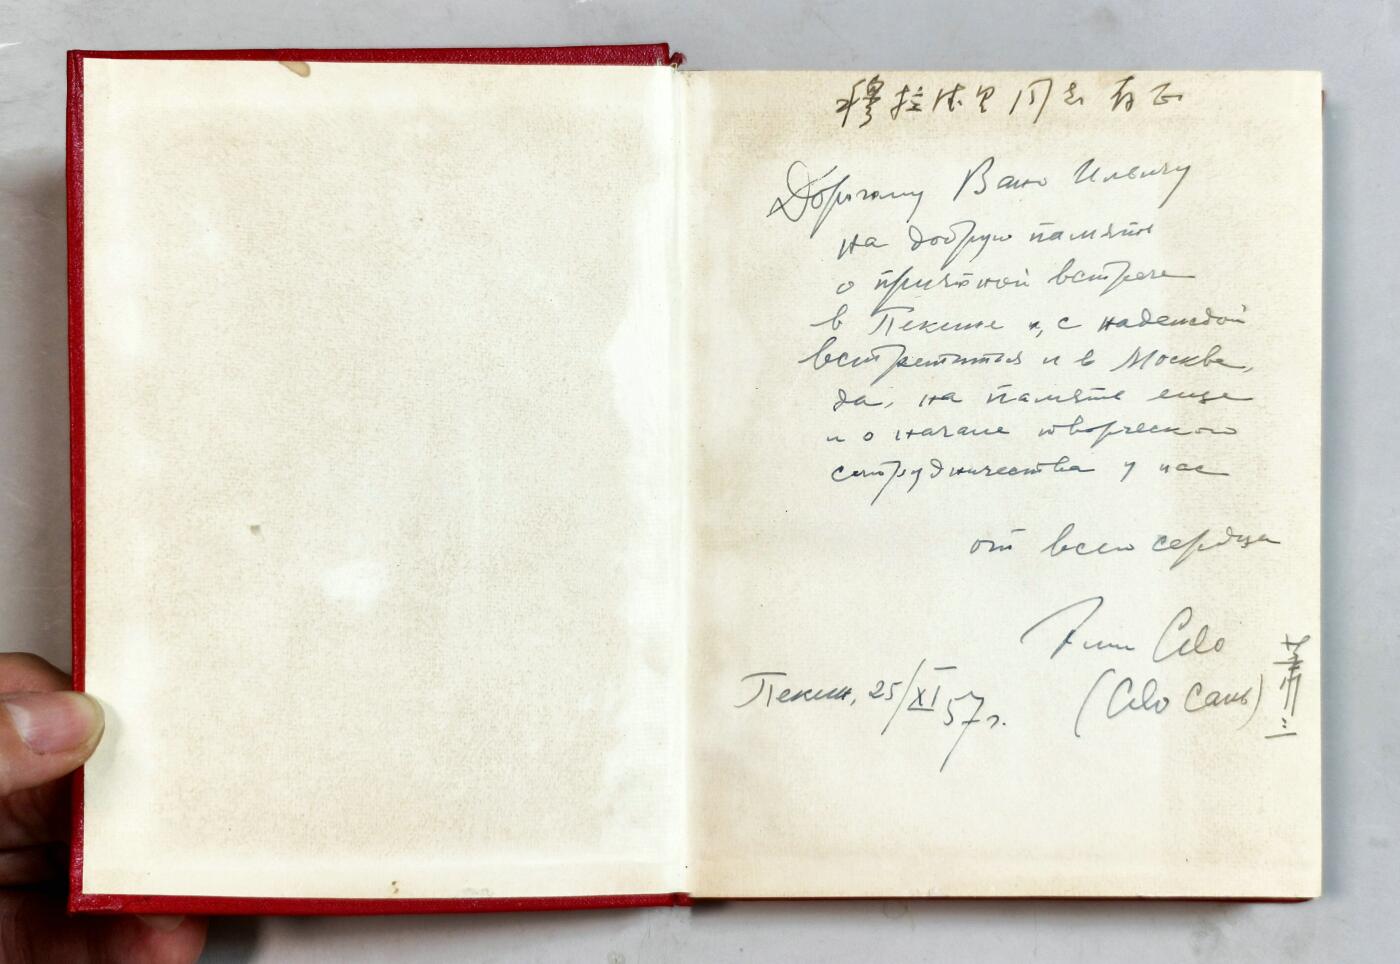 穆拉杰里同志存正
Дорогому Вано Ильичу
на добрую память
о приятной встрече
в Пекине и, с надеждой
встретиться и в Москве,
да, на память еще
и о начале творческого
сотрудничества у нас
от всего сердца
Эми Сяо
Пекин, 25/XI 57 г.
(Сяо Сань)
萧三